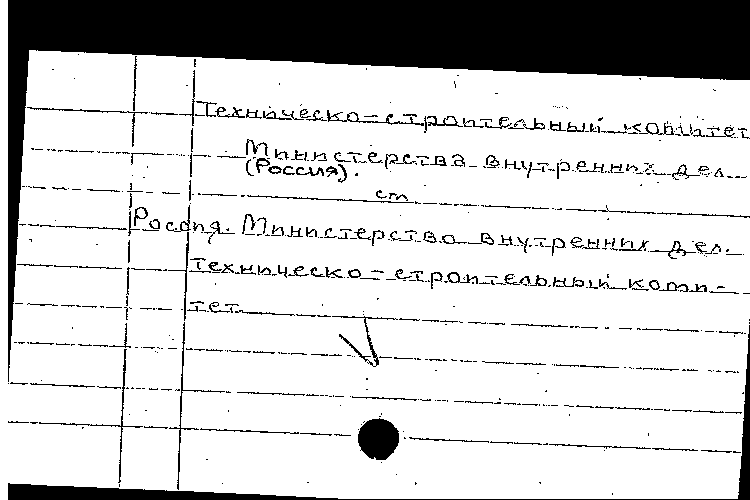 Техническо-строительный комитет
Министерства внутренних дел.
(Россия).
см
Россия. Министерство внутренних дел.
Техническо-строительный коми-
тет.